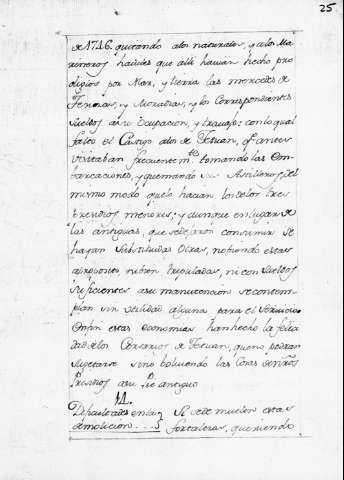 25
de 1746. quitando alos naturales, y alos Ma
rineros haviles que alli havian hecho pro
digios por Mar, y tierra las mercedes de
Tierras, y Moradas, y los correspondientes
sueldos asu ocupacion, y travajo: con lo qual
falto el Castigo alos de Tetuan, qe. antes
visitaban frecuentemte. tomando las Em
barcaciones, y quemando sus Astilleros, del
mismo modo quelo hacian los delos tres
Presidios menores; y aunque en lugar de
las antiguas, que sedejaron consumir se
hayan substituidas otras, no siendo estas
aproposito, ni bien tripuladas, ni con sueldos
suficientes asu manutencion secontem
plan sin utilidad alguna para el Servicio
Enfin estas economias han hecho la felici
dad delos Corsarios de Tetuan, que no podran
sugetarse sino bolviendo las cosas de nros
Presidios asu Pie antiguo
Dificultades en la
demolicion
Si se demuelen estas
fortalezas, queriendo